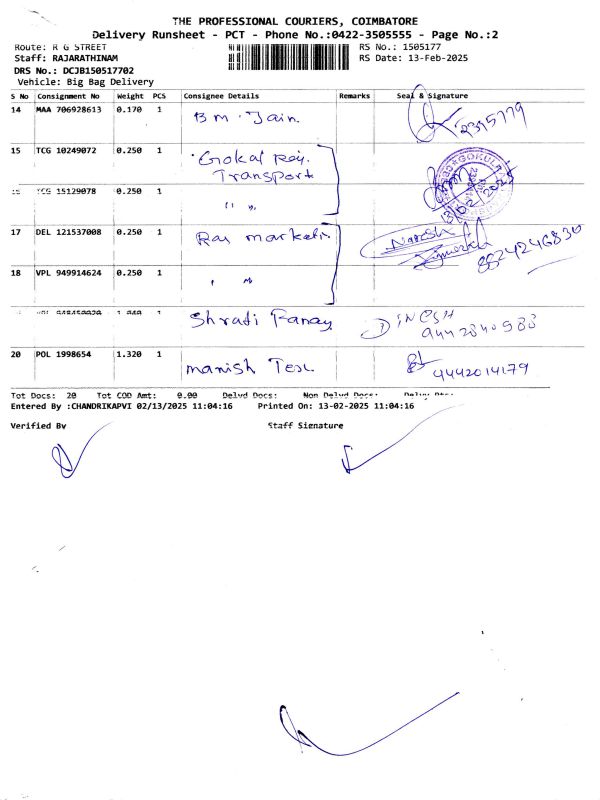 THE PROFESSIONAL COURIERS, COIMBATORE
Delivery Runsheet - PCT - Phone No.:0422-3505555 - Page No.:2
Route: R G STREET
RS No.: 1505177
Staff: RAJARATHINAM
RS Date: 13-Feb-2025
DRS No.: DCJB150517702
Vehicle: Big Bag Delivery
S No Consignment No Weight PCS Consignee Details Remarks Seal & Signature
14 MAA 706928613 0.170 1 B m. Jain 2395779
15 TCG 10249072 0.250 1 Gokal Roy.
Transport
TCG 15129078 0.250 1 " "
GOKUL
13/02/2025
17 DEL 121537008 0.250 1 Raj marketi Naresh
8824246830
18 VPL 949914624 0.250 1 " "
1 Shrati Fancy DINESH
9442840988
20 POL 1998654 1.320 1 manish Tex 9442014179
Tot Docs: 20 Tot COD Amt: 0.00 Delvd Docs: Non Delvd Docs:
Entered By :CHANDRIKAPVI 02/13/2025 11:04:16 Printed On: 13-02-2025 11:04:16
Verified By Staff Signature